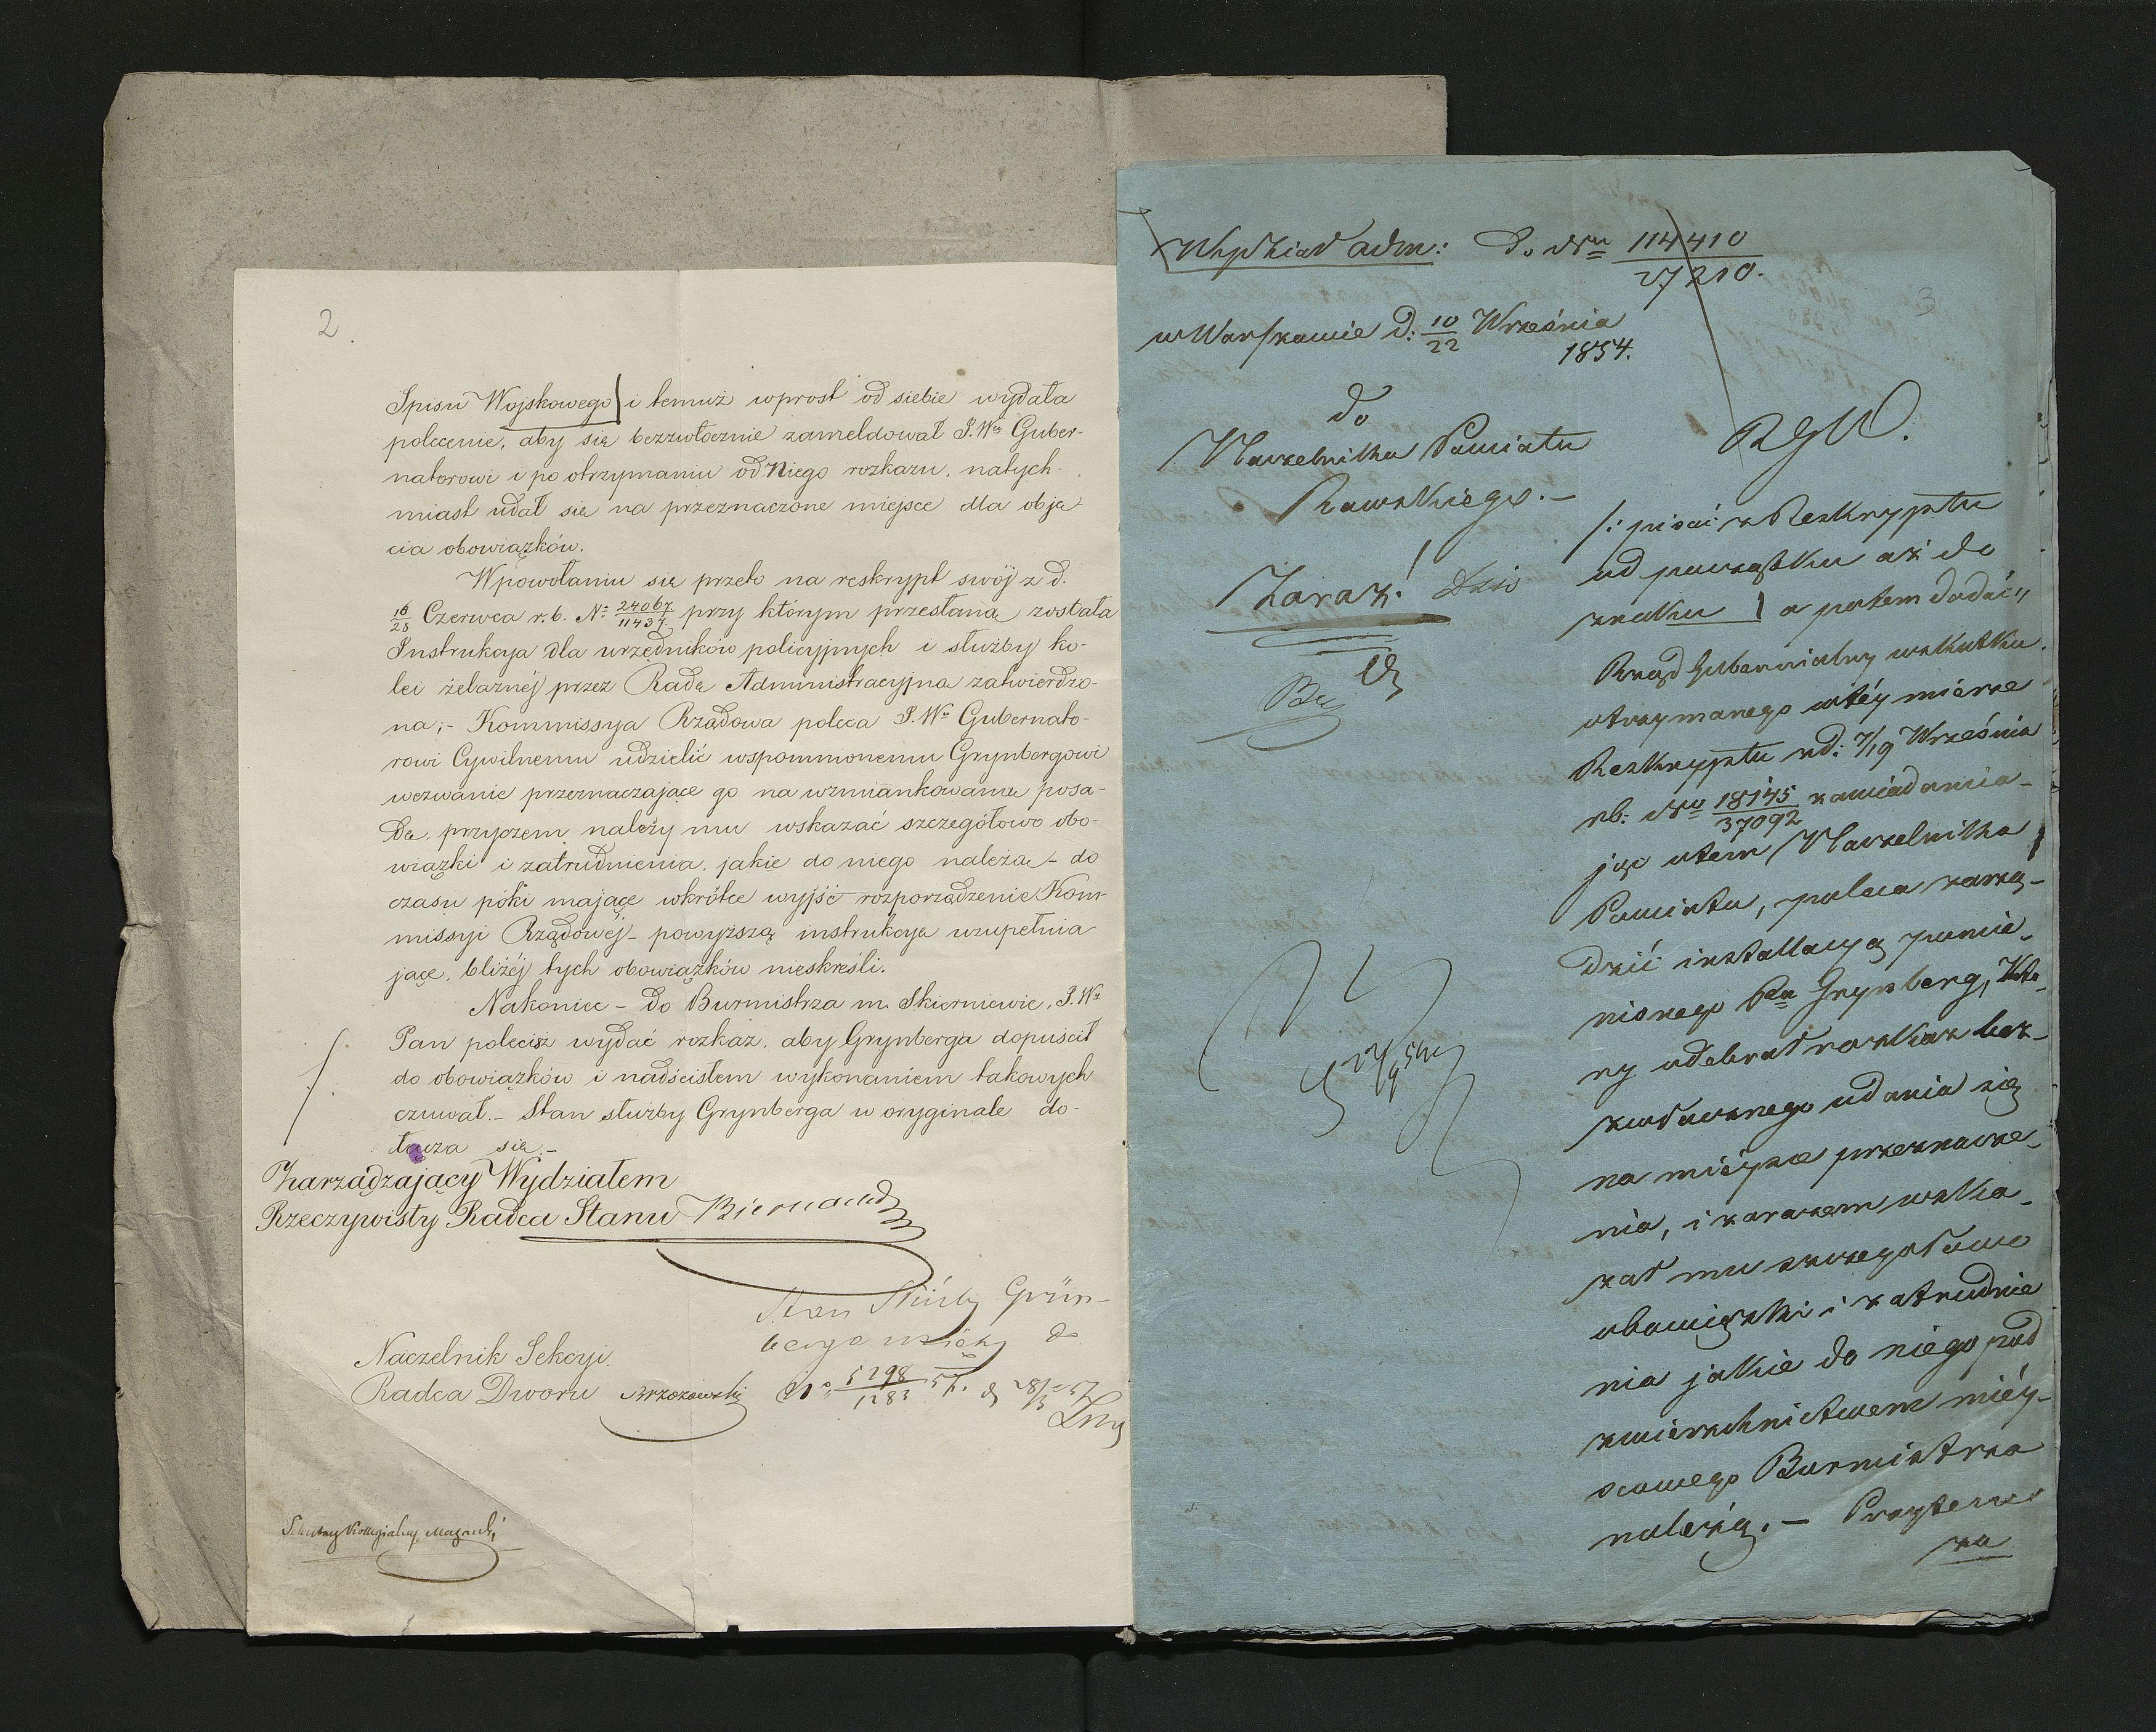 2
Spisu Wojskowego i temuż wprost od siebie wydała
polecenie, aby się bezzwłocznie zameldował J.Wu Guber-
natorowi i po otrzymaniu od Niego rozkazu, natych-
miast udał się na przeznaczone miejsce dla obję-
cia obowiązków.
W powołaniu się przeto na reskrypt swój z d.
16/28 Czerwca r.b. No 24067/11437 przy którym przesłaną została
Instrukcya dla urzędników policyjnych i służby ko-
lei żelaznéj przez Radę Administracyjną zatwierdzo-
na;- Kommissya Rządowa poleca J.Wu Gubernato-
rowi Cywilnemu udzielić wspomnionemu Grynbergowi
wezwanie przeznaczające go na wzmiankowaną posa-
dę, przyczem należy mu wskazać szczegółowo obo-
wiązki i zatrudnienia, jakie do niego należą - do
czasu póki mające wkrótce wyjść rozporządzenie Kom-
missyi Rządowéj - powyższą instrukcyę uzupełnia-
jące, bliżéj tych obowiązków nieskreśli.
Nakoniec - do Burmistrza m. Skierniewic, J.Wy
Pan polecisz wydać rozkaz, aby Grynberga dopuścił
do obowiązków i nad ścisłem wykonaniem takowych
czuwał.- Stan służby Grynberga w oryginale do-
łącza się.-
Zarządzający Wydziałem
Rzeczywisty Radca Stanu Biernacki
Stan Służby Grün-
berga wzięty do
No 5298/1283 57. d 28/3 57
Naczelnik Sekcyi.
Radca Dworu Brzozowski
Sekretarz Kollegialny
Wydział adm: Do Nru 114410/27210.
3
w Warszawie d: 10/22 Września
1854.
do
Naczelnika Powiatu
Rawskiego.-
Zaraz! Dziś
RGW.
/: pisać z Reskryptu
od początku aż do
znaku | a potem dodać,,
Rząd Gubernialny w skutku
otrzymanego w téy mierze
Reskryptu z d: 7/19 Września
rb: Nru 18145/37092 zawiadamia-
jąc o tém Naczelnika
Powiatu, poleca zarzą-
dzić installacyą pomie-
nionego Pa Grynberg, któ-
ry odebrał rozkaz bez-
zwłocznego udania się
na miéysce przeznacze-
nia, i zarazem wska-
zać mu szczegółowo
obowiązki i zatrudnie
nia jakie do niego pod
zwierzchnictwem miéy-
scowego Burmistrza
należą.- Przytem
za